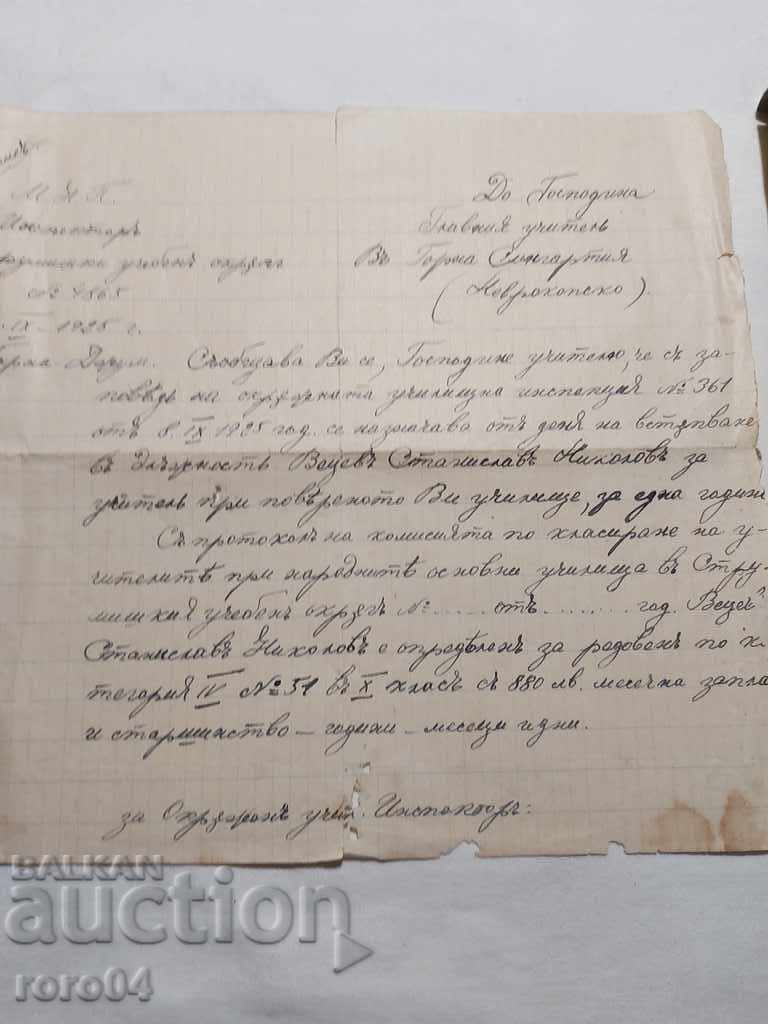 М Н П.
До Господина
Инспекторъ
Главния учитель
учебенъ окрѫгъ
Въ Горна Сингартия
№ 4865
(Неврокопско).
IX – 1925 г.
Горна-Джум. Съобщава Ви се, Господине учителю, че съ за-
повѣдь на окрѫжната училищна инспекция № 361
отъ 8. IX 1925 год. се назначава отъ деня на встѫпване
въ длъжность Вецевъ Станиславъ Николовъ за
учитель при повѣреното Ви училище, за една година
Съ протоколъ на комисията по класиране на у-
чителитѣ при народнитѣ основни училища въ Стру-
мишкия учебенъ окрѫгъ №........отъ..........год. Вецевъ
Станиславъ Николовъ е опредѣленъ за редовенъ по ка-
тегория IV № 51 въ X класъ съ 880 лв. месечна запла
и старшинство – години – месеци и дни.
за Окрѫженъ учил. Инспекторъ:
BALKAN
auction
roro04